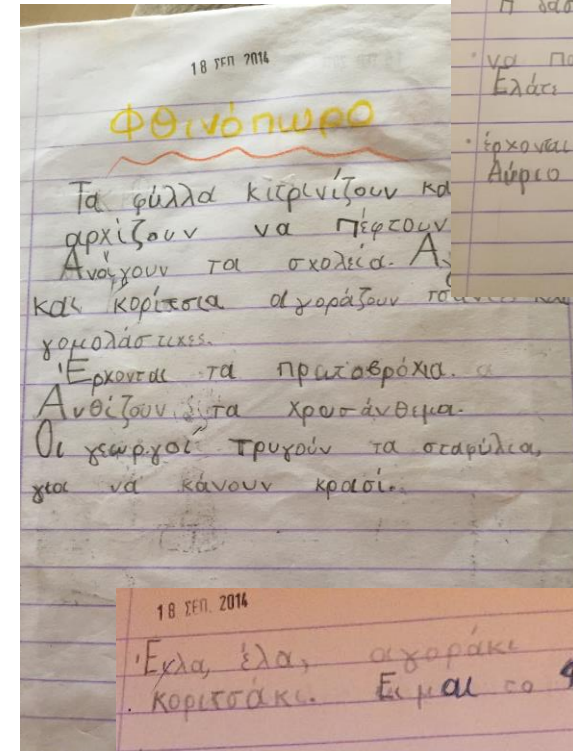 18 ΣΕΠ 2014
Φθινόπωρο
Τα φύλλα κιτρινίζουν
αρχίζουν να πέφτουν
Ανοίγουν τα σχολεία.
και κορίτσια αγοράζουν
γομολάστιχες.
Έρχονται τα πρωτοβρόχια.
Ανθίζουν τα χρυσάνθεμα.
Οι γεωργοί τρυγούν τα σταφύλια,
για νά κάνουν κρασί.
να
Ελάτε
έρχονται
Αύριο
18 ΣΕΠ. 2014
έλα, αγοράκι
κοριτσάκι. Είμαι το